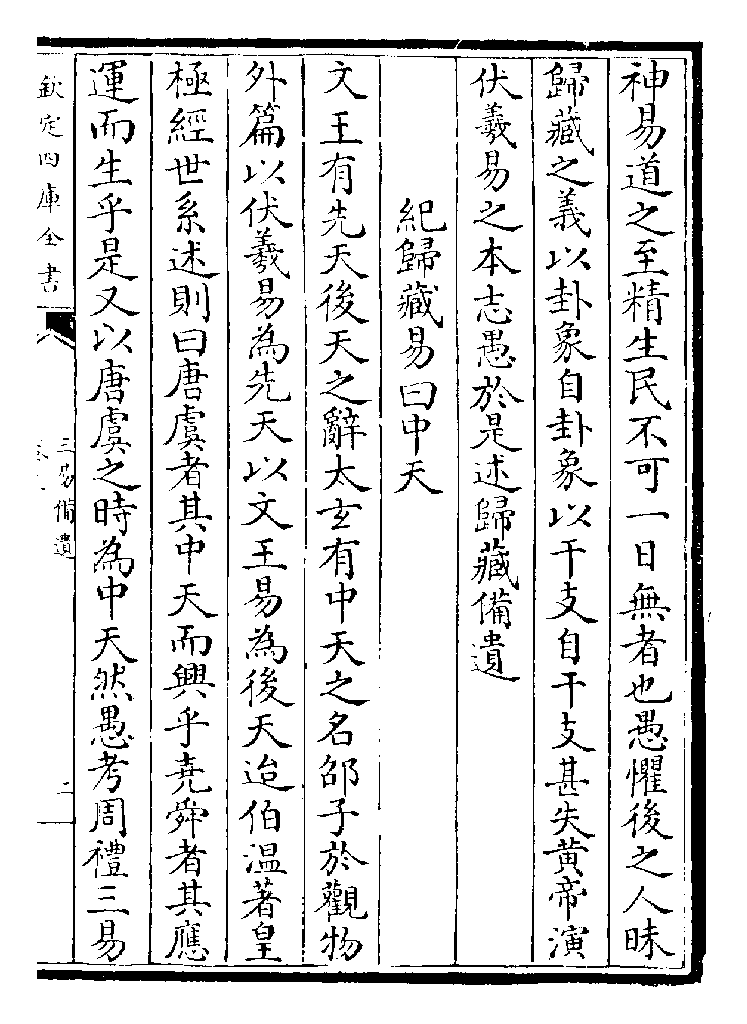 神易道之至精生民不可一日無者也愚懼後之人昧
歸藏之義以卦象自卦象以干支自干支甚失黃帝演
伏羲易之本志愚於是述歸藏備遺
紀歸藏易曰中天
文王有先天後天之辭太玄有中天之名邵子於觀物
外篇以伏羲易為先天以文王易為後天迨伯温著皇
極經世系述則曰唐虞者其中天而興乎堯舜者其應
運而生乎是又以唐虞之時為中天然愚考周禮三易
欽定四庫全書
三易備遺
二